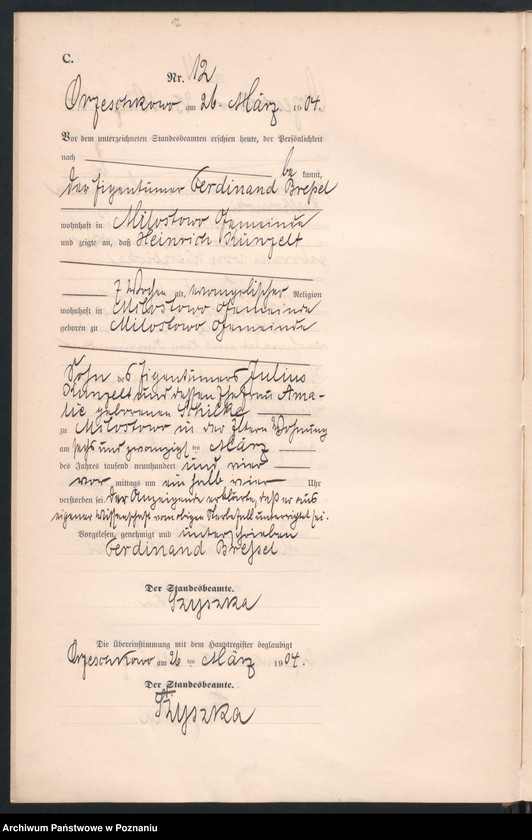 C.
Nr. 12
Orzeschkowo am 26. März 1904.
Vor dem unterzeichneten Standesbeamten erschien heute, der Persönlichkeit
nach be kannt,
der Eigentümer Ferdinand Breßel
wohnhaft in Milostowo Gemeinde
und zeigte an, daß Heinrich Künzelt
7 Wochen alt, evangelischer Religion
wohnhaft in Milostowo Gemeinde
geboren zu Milostowo Gemeinde
Sohn des Eigentümers Julius
Künzelt und dessen Ehefrau Ama-
lie geborenen Schilke
zu Milostowo in der Eltern Wohnung
am sechs und zwanzigsten März
des Jahres tausend neunhundert und vier
vor mittags um ein halb vier Uhr
verstorben sei. Der Anzeigende erklärte, daß er aus
eigener Wissenschaft vom obigen Sterbefall unterrichtet sei.
Vorgelesen, genehmigt und unterschrieben
Ferdinand Breßel
Der Standesbeamte.
Szyszka
Die Übereinstimmung mit dem Hauptregister beglaubigt
Orzeschkowo am 26 ten März 1904.
Der Standesbeamte.
Szyszka
Archiwum Państwowe w Poznaniu